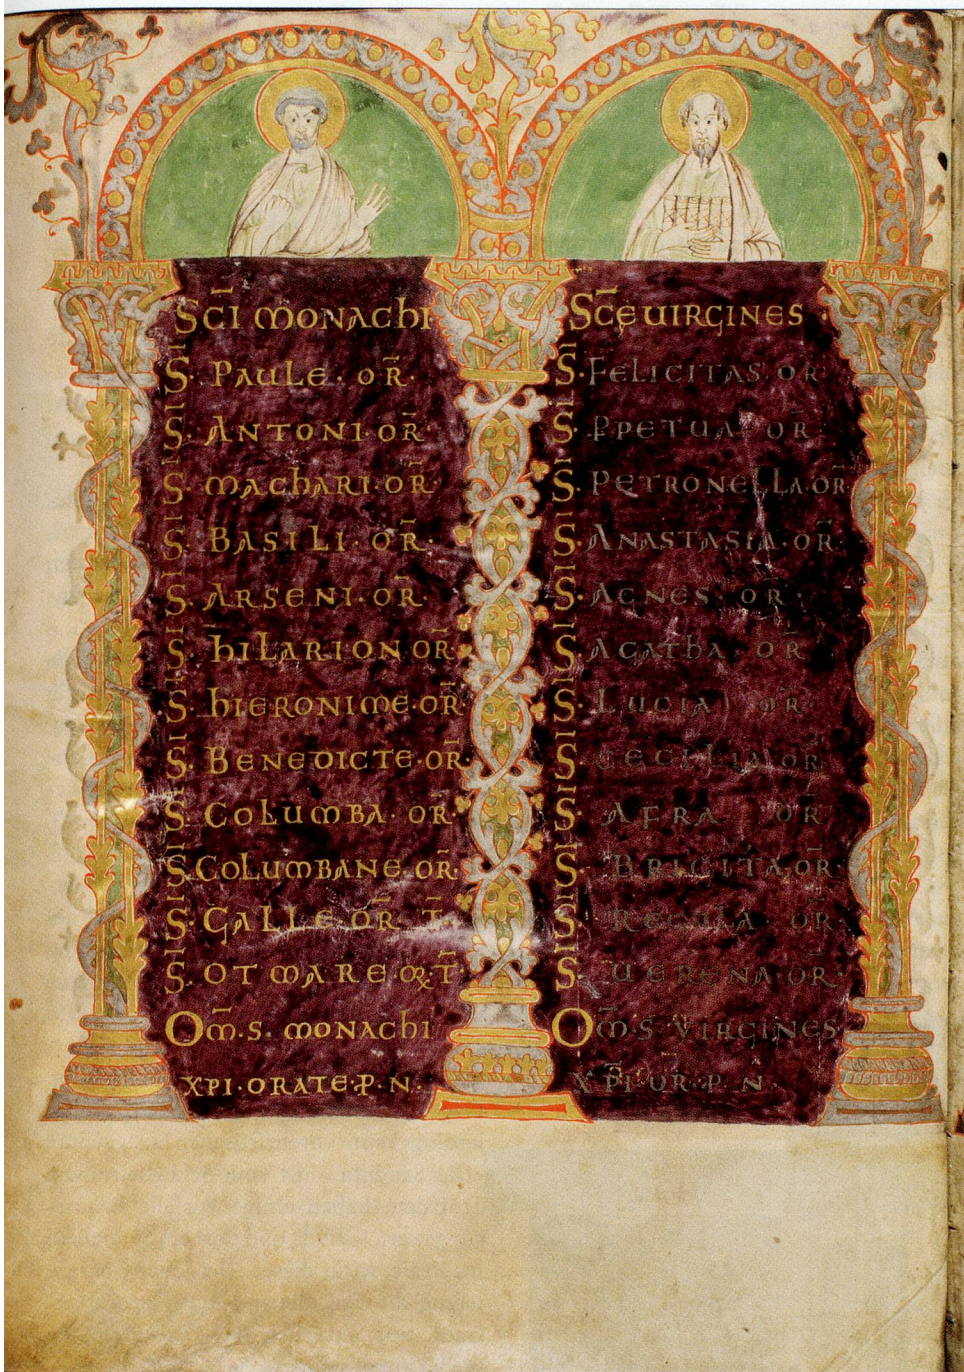 SC̄I MONAChI
S̄. PAULE · OR̄.
S̄. ANTONI · OR̄.
S̄. MAChARI · OR̄.
S̄. BASILI · OR̄.
S̄. ARSENI · OR̄.
S̄. hILARION OR̄
S̄. hIERONIME · OR̄
S̄. BENEDICTE · OR̄.
S̄. COLUMBA · OR.
S̄. COLUMBANE · OR̄.
S̄. GALLE · OR̄ · T̄
S̄. OTMARE OR · T̄
OM̄ · S · MONAChI
XPI · ORATE · P · N ·
SC̄Ę UIRGINES
S̄. FELICITAS · OR̄
S̄. ꝐPETUA · OR̄
S̄. PETRONELLA · OR̄
S̄. ANASTASIA · OR̄.
S̄. AGNES · OR̄ ·
S̄. AGAThA · OR̄
S̄. LUCIA OR̄
S̄. CECILIA · OR̄
S̄. AFRA OR
S̄. BRIGITA · OR̄.
S̄. REGULA OR̄
S̄. UERENA · OR̄.
OM̄ · S · VIRGINES
XP̄I · OR̄ · P · N